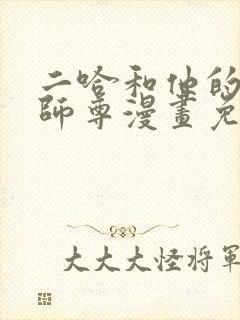 二哈和他的
師尊漫畫免
大大大怪将軍